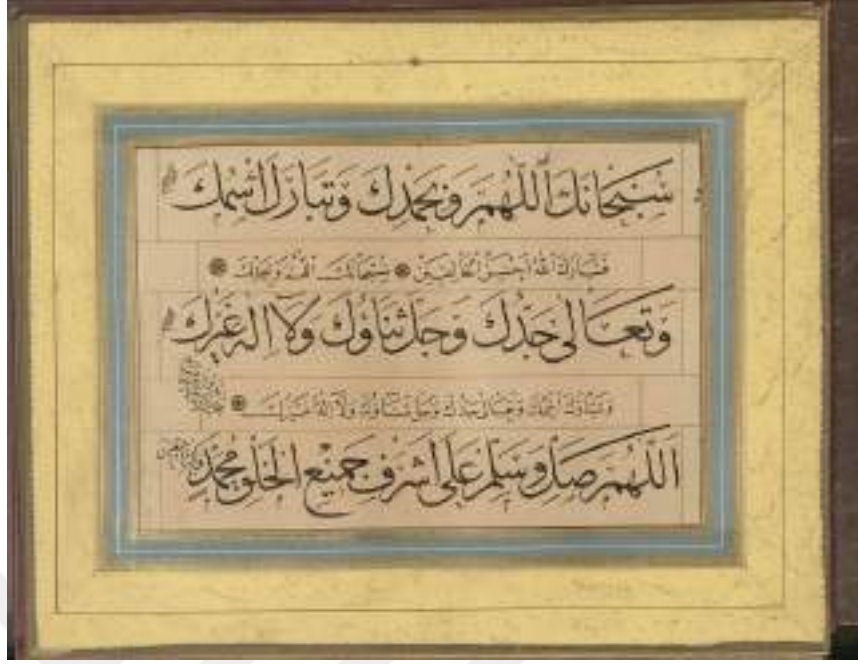 سُبْحَانَكَ اللّٰهُمَّ وَبِحَمْدِكَ وَتَبَارَكَ اسْمُكَ
فتبارك الله احسن الخالقين سبحانك اللهم وبحمدك
وَتَعَالٰى جَدُّكَ وَجَلَّ ثَنَاؤُكَ وَلَا اِلٰهَ غَيْرُكَ
وتبارك اسمك وتعالى جدك وجل ثناؤك ولا اله غيرك
اَللّٰهُمَّ صَلِّ وَسَلِّمْ عَلٰى اَشْرَفِ جَمِيْعِ الْخَلْقِ مُحَمَّدٍ